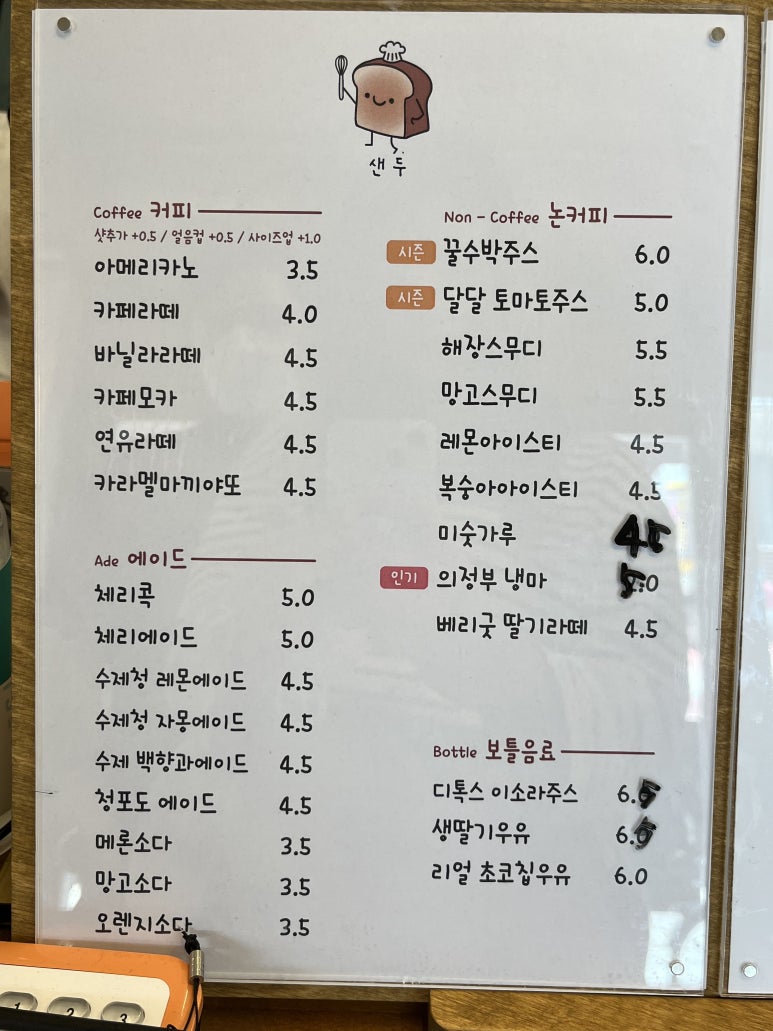 샌두
Coffee 커피
샷추가 +0.5 / 얼음컵 +0.5 / 사이즈업 +1.0
아메리카노 3.5
카페라떼 4.0
바닐라라떼 4.5
카페모카 4.5
연유라떼 4.5
카라멜마끼야또 4.5
Ade 에이드
체리콕 5.0
체리에이드 5.0
수제청 레몬에이드 4.5
수제청 자몽에이드 4.5
수제 백향과에이드 4.5
청포도 에이드 4.5
메론소다 3.5
망고소다 3.5
오렌지소다 3.5
Non - Coffee 논커피
시즌 꿀수박주스 6.0
시즌 달달 토마토주스 5.0
해장스무디 5.5
망고스무디 5.5
레몬아이스티 4.5
복숭아아이스티 4.5
미숫가루 4.5
인기 의정부 냉마 5.0
베리굿 딸기라떼 4.5
Bottle 보틀음료
디톡스 이소라주스 6.5
생딸기우유 6.5
리얼 초코칩우유 6.0
1 2 3